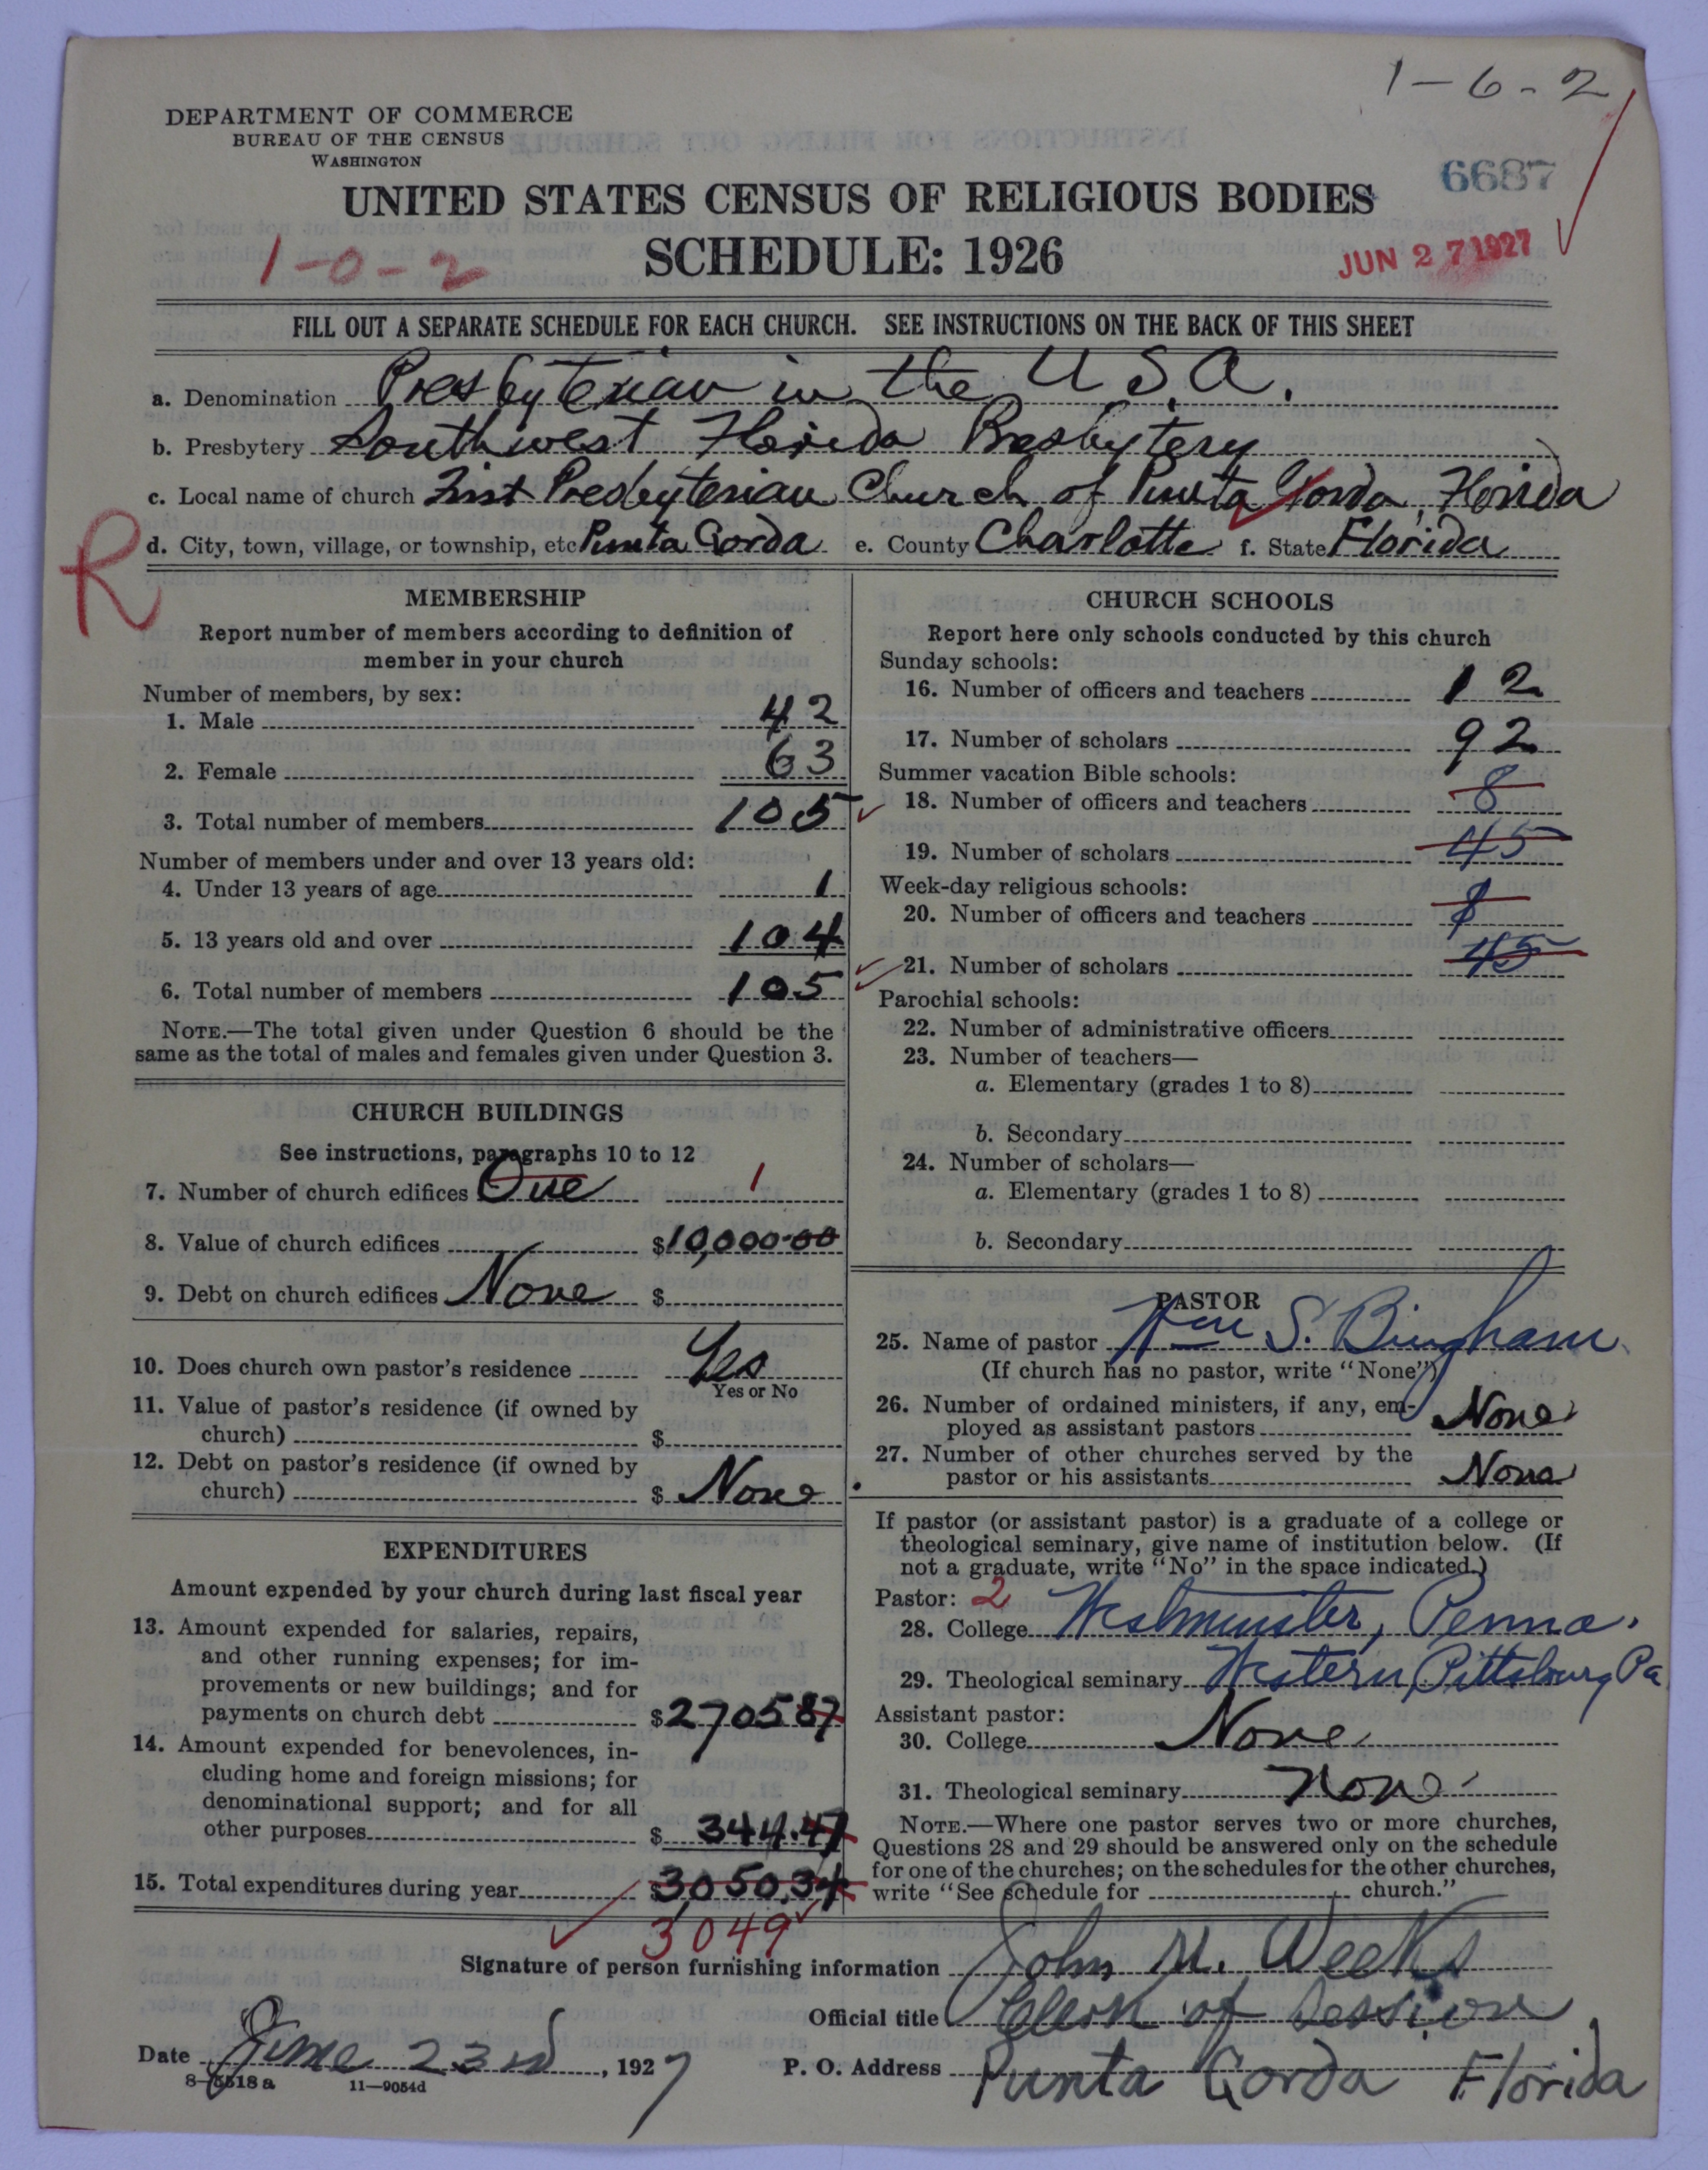 1-6-2
DEPARTMENT OF COMMERCE
BUREAU OF THE CENSUS
WASHINGTON
6687
UNITED STATES CENSUS OF RELIGIOUS BODIES
1-0-2
SCHEDULE: 1926
JUN 27 1927
FILL OUT A SEPARATE SCHEDULE FOR EACH CHURCH. SEE INSTRUCTIONS ON THE BACK OF THIS SHEET
a. Denomination Presbyterian in the U.S.A.
b. Presbytery Southwest Florida Presbytery
c. Local name of church First Presbyterian Church of Punta Gorda, Florida
R
d. City, town, village, or township, etc Punta Gorda e. County Charlotte f. State Florida
MEMBERSHIP
Report number of members according to definition of
member in your church
Number of members, by sex:
1. Male 42
2. Female 63
3. Total number of members 105
Number of members under and over 13 years old:
4. Under 13 years of age 1
5. 13 years old and over 104
6. Total number of members 105
NOTE.—The total given under Question 6 should be the
same as the total of males and females given under Question 3.
CHURCH BUILDINGS
See instructions, paragraphs 10 to 12
7. Number of church edifices One 1
8. Value of church edifices $10,000.00
9. Debt on church edifices None $
10. Does church own pastor's residence Yes
Yes or No
11. Value of pastor's residence (if owned by
church) $
12. Debt on pastor's residence (if owned by
church) $ None
EXPENDITURES
Amount expended by your church during last fiscal year
13. Amount expended for salaries, repairs,
and other running expenses; for im-
provements or new buildings; and for
payments on church debt $270587
14. Amount expended for benevolences, in-
cluding home and foreign missions; for
denominational support; and for all
other purposes $ 344.47
15. Total expenditures during year $3050.34
3049
CHURCH SCHOOLS
Report here only schools conducted by this church
Sunday schools:
16. Number of officers and teachers 12
17. Number of scholars 92
Summer vacation Bible schools:
18. Number of officers and teachers 8
19. Number of scholars 45
Week-day religious schools:
20. Number of officers and teachers 8
21. Number of scholars 45
Parochial schools:
22. Number of administrative officers
23. Number of teachers—
a. Elementary (grades 1 to 8)
b. Secondary
24. Number of scholars—
a. Elementary (grades 1 to 8)
b. Secondary
PASTOR
25. Name of pastor Wm S. Bingham
(If church has no pastor, write "None")
26. Number of ordained ministers, if any, em-
ployed as assistant pastors None
27. Number of other churches served by the
pastor or his assistants None
If pastor (or assistant pastor) is a graduate of a college or
theological seminary, give name of institution below. (If
not a graduate, write "No" in the space indicated.)
Pastor: 2
28. College Westminster, Penna.
29. Theological seminary Western, Pittsburg Pa
Assistant pastor:
30. College None
31. Theological seminary None
NOTE.—Where one pastor serves two or more churches,
Questions 28 and 29 should be answered only on the schedule
for one of the churches; on the schedules for the other churches,
write "See schedule for church."
Signature of person furnishing information John M. Weeks
Official title Clerk of Session
Date June 23rd, 1927 P. O. Address Punta Gorda Florida
8-5518a 11—9054d